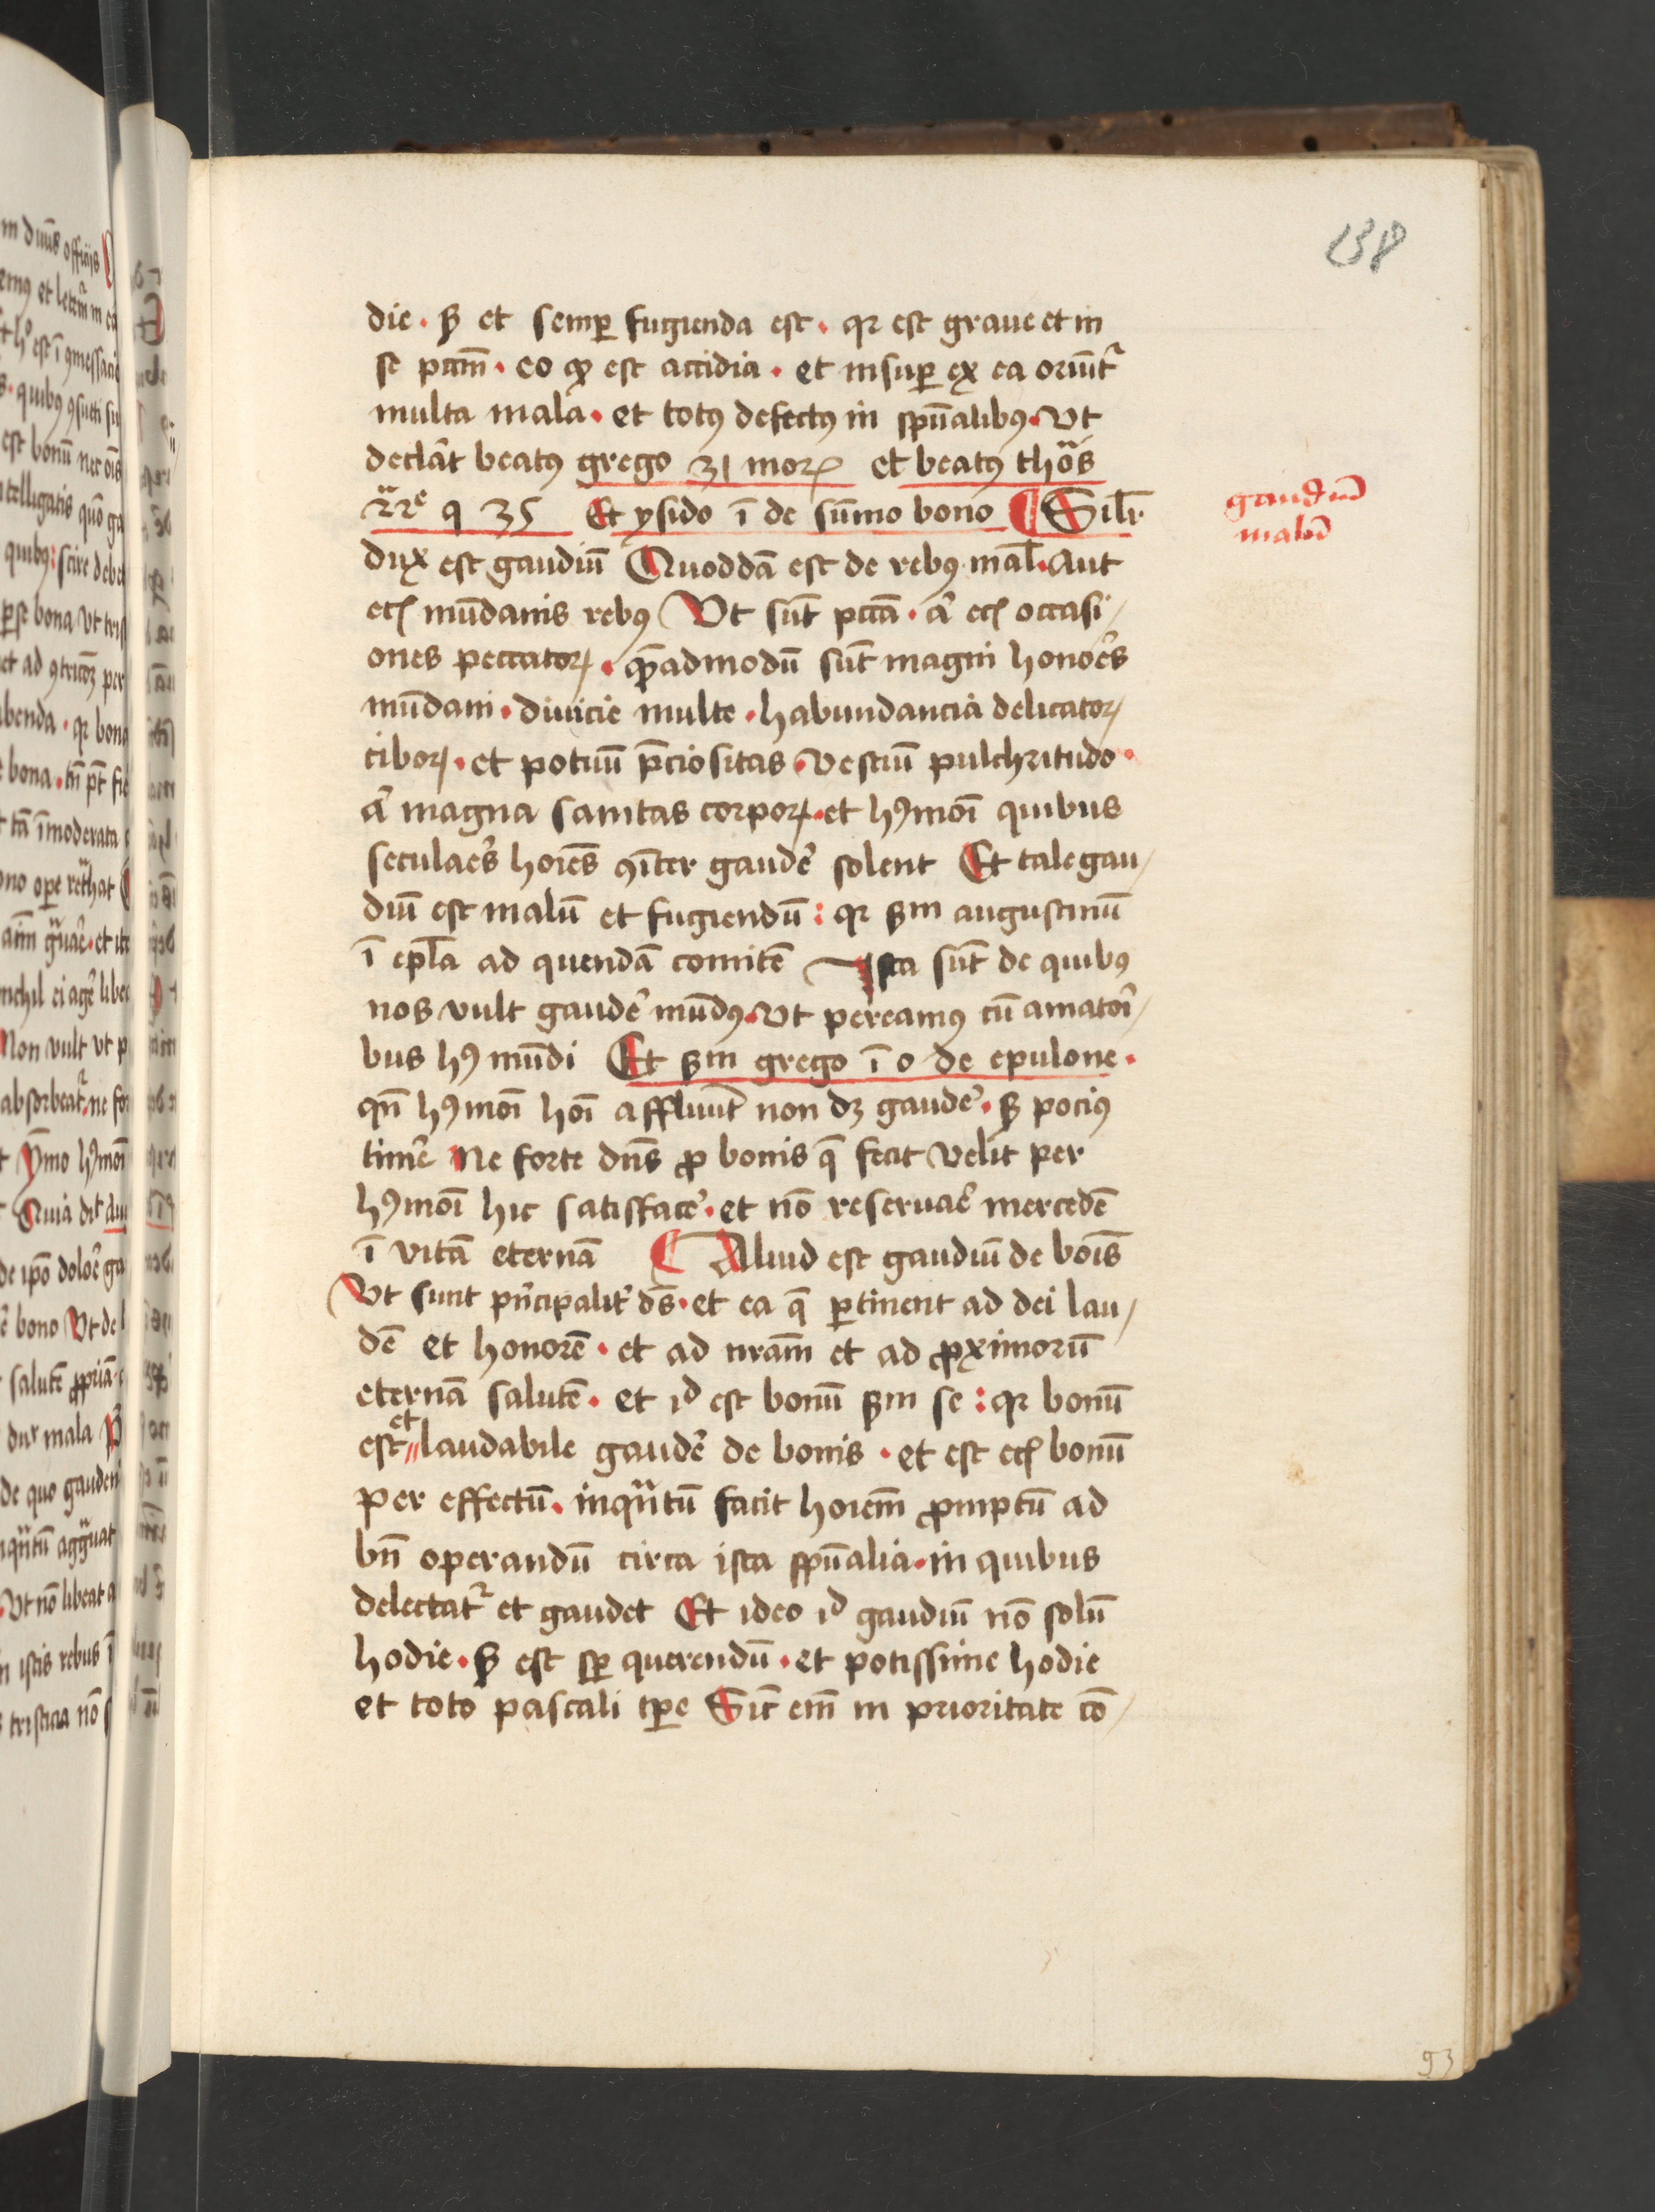 138
die · sꝫ et semꝑ fugienda est · qꝛ est graue et in
se pctm̄ · eo ꝙ est accidia · et insuꝑ ex ea oriūtᷣ
multa mala · et totꝰ defectꝰ in spūalibꝰ · Vt
declāt beatꝰ grego 31 moꝝ et beatꝰ thoās
22e q 35 Et ysido ī de sūmo bono ¶ Sil̄r
gaudiū
malū
dux est gaudiū Quoddā est de rebꝰ mal̄ · Aut
ecꝫ mūdanis rebꝰ Vt sūt pctā · a᷑ ecꝫ occasi/
ones peccatoꝝ · qē̄admodū sūt magni honoēs
mūdani · diuicie multe · habundancia delicatoꝝ
ciboꝝ · et potuū p̄ciositas · Vestiū pulchritudo ·
a᷑ magna sanitas corpoꝝ · et hꝰmōi quibus
seculaēs hoīes ꝯīter gaudē solent Et tale gau/
diū est malū et fugiendū : qꝛ sꝫm augustinū
ī epl̄a ad quendā comitē Ista sūt de quibꝰ
nos vult gaudē mūdꝰ · Vt pereamꝰ cū amatoī/
bus hꝰ mūdi Et sꝫm grego ī o de epulone ·
qn̄ hꝰmōi hōi affluūt non dꝫ gaudē · sꝫ pociꝰ
timē Ne forte dn̄s ꝓ bonis q̄ fecit velit per
hꝰmōi hic satisfacē · et nō reseruaē mercedē
ī vitā eternā ¶ Aliud est gaudiū de boīs
Vt sunt p̄ncipalit᷑ ds̄ · et ea q̄ ꝑtinent ad dei lau/
dē et honorē · et ad nr̄am et ad ꝓximorū
eternā salutē · et id est bonū sꝫm se : qꝛ bonū
est et laudabile gaudē de bonis · et est ecꝫ bonū
per effectū · inqᷓntū facit hoīem ꝓmptū ad
bn̄ operandū circa ista spūalia · in quibus
delectatᷣ et gaudet Et ideo id gaudiū nō solū
hodie · sꝫ est sꝑ querendū · et potissime hodie
et toto pascali tꝑe Sic̄ em̄ in prioritate cō/
93